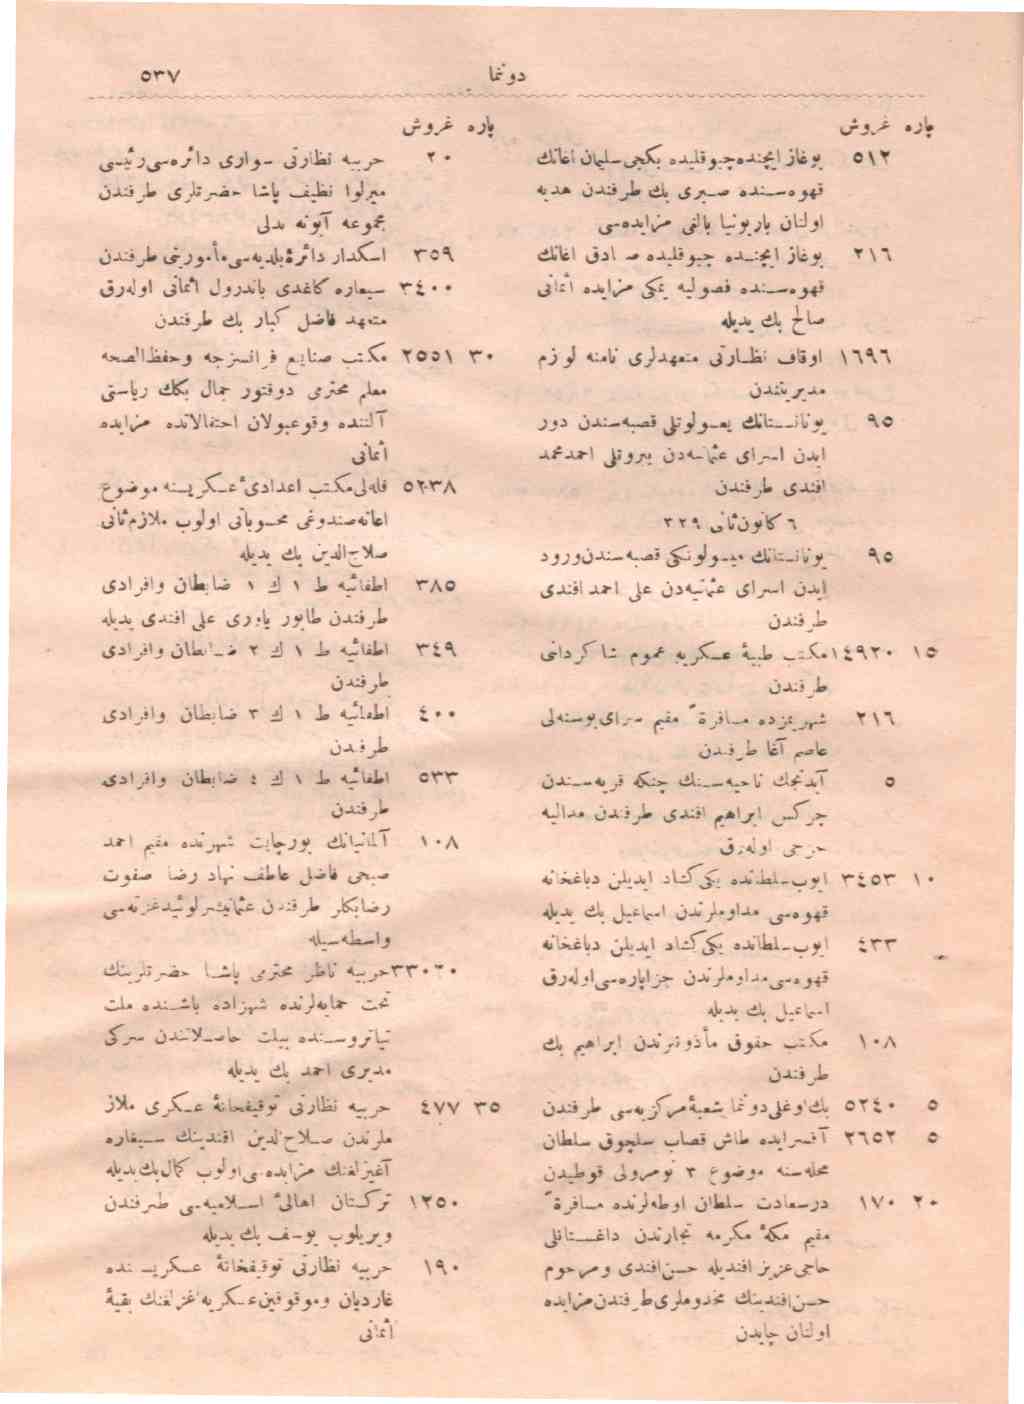 دوننما ٥٣٧
پاره غروش
٥١٢ بوغاز ایچنده چبوقلیده بكجی سلیمان اغانك
قهوه‌سنده صبری بك طرفندن هدیه
اولنان باربونیا بالغی مزایده‌سی
٢١٦ بوغاز ایچنده چبوقلیده صادق اغانك
قهوه‌سنده فصولیه یمكی مزایده اثمانی
صالح بك یدیله
١٦٩٦ اوقاف نظارتی متعهدلری نامنه لوازم
مدیریتندن
٩٥ یونانستانك قصبه‌سندن دور
ایدن اسرای عثمانیه‌دن بیروتلی احمد محمد
افندی طرفندن
٦ كانون ثانی ٣٢٩
٩٥ یونانستانك میسولونكی قصبه‌سندن ورود
ایدن اسرای عثمانیه‌دن علی احمد افندی
طرفندن
١٥ ١٤٩٢٠ مكتب طبیهٔ عسكریه عموم شاكردانی
طرفندن
٢١٦ شهریمزده مسافرةً مقیم سرای بوسنه‌لی
عاصم آغا طرفندن
٥ آیدنجك ناحیه‌سنك چنكه قریه‌سندن
چركس ابراهیم افندی طرفندن مدالیه
خرجی اوله‌رق
١٠ ٣٤٥٣ ایوب سلطانده یكی كشاد ایدیلن دباغخانه
قهوه‌سی مداوملرندن اسماعیل بك یدیله
٤٣٣ ایوب سلطانده یكی كشاد ایدیلن دباغخانه
قهوه‌سی مداوملرندن جزا پاره‌سی اوله‌رق
اسماعیل بك یدیله
١٠٨ مكتب حقوق مأذونلرندن ابراهیم بك
طرفندن
٥ ٥٢٤٠ بك اوغلی دوننما شعبهٔ مركزیه‌سی طرفندن
٥ ٢٦٥٢ آقسرایده طاش قصاب سلچوق سلطان
محله‌سنه موضوع ٣ نومرولی قوطیدن
٢٠ ١٧٠ درسعادت سلطان اوطه‌لرنده مسافرةً
مقیم مكهٔ مكرمه تجارندن داغستانلی
حاجی عزیز افندیله حسن افندی و مرحوم
حسن افندینك مخدوملری طرفندن مزایده
اولنان چایدن
پاره غروش
٢٠ حربیه نظارتی سواری دائره‌سی رئیسی
میرلوا نظیف پاشا حضرتلری طرفندن
مجموعه آبونه بدلی
٣٥٩ اسكدار دائرهٔ بلدیه‌سی مأموریتی طرفندن
٣٤٠٠ سیغاره كاغدی باندرول اثمانی اوله‌رق
متعهد فاضل كبار بك طرفندن
٣٠ ٢٥٥١ مكتب صنایع فرانسزجه وحفظ‌الصحه
معلم محترمی دوقتور جمال بكك ریاستی
آلتنده وقوعبولان احتفالاتده مزایده
اثمانی
٥٢٣٨ قله‌لی مكتب اعدادیٔ عسكریسنه موضوع
اعانه صندوغی محسوباتی اولوب ملازم ثانی
صلاح‌الدین بك یدیله
٣٨٥ اطفائیه ط ١ ك ١ ضابطان وافرادی
طرفندن طابور یاوری علی افندی یدیله
٣٤٩ اطفائیه ط ١ ك ٢ ضابطان وافرادی
طرفندن
٤٠٠ اطفائیه ط ١ ك ٣ ضابطان وافرادی
طرفندن
٥٣٣ اطفائیه ط ١ ك ٤ ضابطان وافرادی
طرفندن
١٠٨ آلمانیانك شهرنده مقیم احمد
صبحی فاضل عاطف نهاد رضا صفوت
رضا بكلر طرفندن عثمانیشر لوئید غزته‌سی
واسطه‌سیله
حربیه ناظر محترمی پاشا حضرتلرینك
تحت حمایه‌لرنده شهزاده باشنده ملت
تیاتروسنده بیلت حاصلاتندن سركی
مدیری احمد بك یدیله
٣٥ ٤٧٧ حربیه نظارتی توقیفخانهٔ عسكری ملاز
ملرندن صلاح‌الدین افندینك سیغاره
آغیزلغنك مزایده‌سی اولوب كمال بك یدیله
١٢٥٠ تركستان اهالیٔ اسلامیه‌سی طرفندن
ویریلوب یوسف بك یدیله
١٩٠ حربیه نظارتی توقیفخانهٔ عسكریسنده
غاردیان وموقوفین عسكریه اغزلغنك بقیهٔ
اثمانی